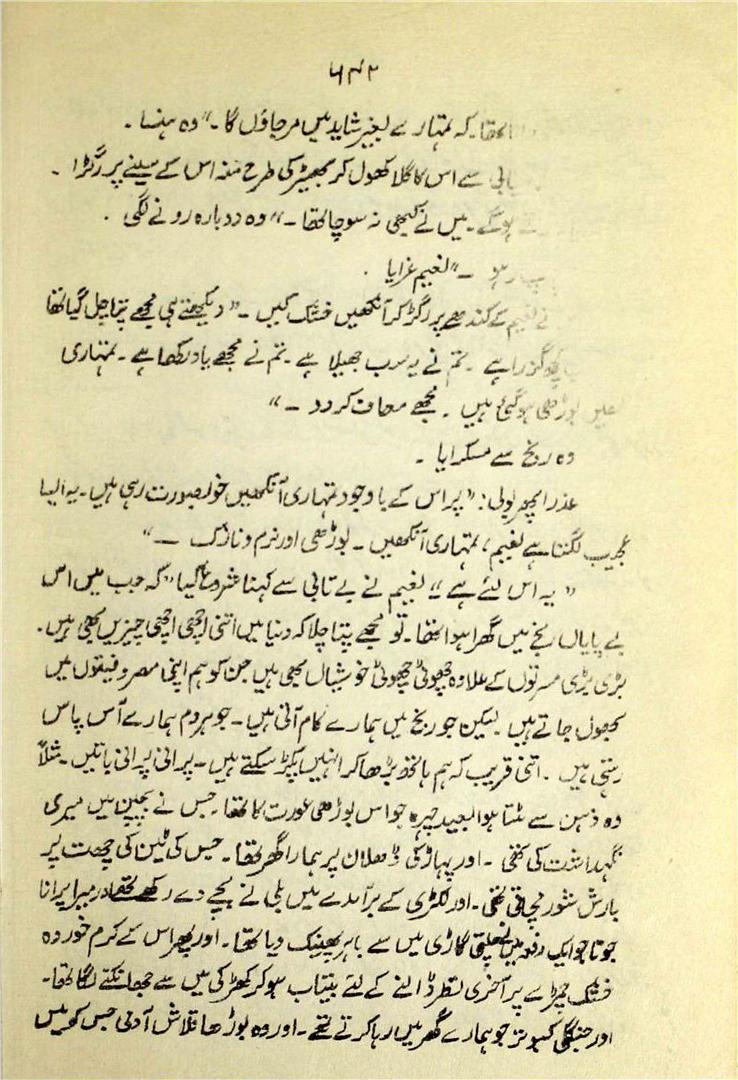 ۶۴۲
تھا۔ کہ تمہارے بغیر شاید میں مر جاؤں گا۔“ وہ ہنسا۔
سے اس کا گلا کھول کر بھیڑ کی طرح منہ اس کے سینے پر رگڑا۔
ہوگے۔ میں نے کبھی نہ سوچا تھا۔“ وہ دوبارہ رونے لگی۔
ہو۔“ نعیم غرایا۔
نے نعیم کے کندھے پر رگڑ کر آنکھیں خشک کیں۔ ”دیکھتے ہی مجھے پتا چل گیا تھا
کچھ گزرا ہے۔ تم نے یہ سب جھیلا ہے۔ تم نے مجھے یاد رکھا ہے۔ تمہاری
بوڑھی ہو گئی ہیں۔ مجھے معاف کر دو۔“
وہ رنج سے مسکرایا۔
عذرا پھر بولی: ”پر اس کے باوجود تمہاری آنکھیں خوبصورت رہی ہیں۔ یہ ایسا
عجیب لگتا ہے نعیم، تمہاری آنکھیں۔ بوڑھی اور نرم و نازک ۔“
”یہ اس لئے ہے“ نعیم نے بے تابی سے کہنا شروع کیا ”کہ جب میں اس
بے پایاں رنج میں گھرا ہوا تھا۔ تو مجھے پتا چلا کہ دنیا میں اتنی اچھی اچھی چیزیں بھی ہیں۔
بڑی بڑی مسرتوں کے علاوہ چھوٹی چھوٹی خوشیاں بھی ہیں جن کو ہم اپنی مصروفیتوں میں
بھول جاتے ہیں۔ لیکن جو رنج میں ہمارے کام آتی ہیں۔ جو ہر دم ہمارے آس پاس
رہتی ہیں۔ اتنی قریب کہ ہم ہاتھ بڑھا کر انہیں پکڑ سکتے ہیں۔ پرانی پرانی باتیں۔ مثلاً
وہ ذہن سے مٹتا ہوا بعید چہرہ جو اس بوڑھی عورت کا تھا۔ جس نے بچپن میں میری
نگہداشت کی تھی۔ اور پہاڑ کی ڈھلان پر ہمارا گھر تھا۔ جس کی ٹین کی چھت پر
بارش شور مچاتی تھی۔ اور لکڑی کے برآمدے میں بلی نے بچے دے رکھے تھے اور میرا پرانا
جوتا جو ایک دفعہ میں نے چلتی گاڑی میں سے باہر پھینک دیا تھا۔ اور پھر اس کے کرم خوردہ
خشک چمڑے پر آخری نظر ڈالنے کے لئے بیتاب ہو کر کھڑکی میں سے جھانکنے لگا تھا۔
اور جنگلی کبوتر جو ہمارے گھر میں رہا کرتے تھے۔ اور وہ بوڑھا قلاش آدمی جس کو میں